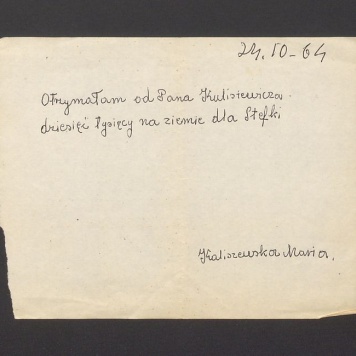 24.10-64
Otrzymałam od Pana Kulisiewicza.
dziesięć tysięcy na ziemie dla Stefki
Kaliszewska Maria.